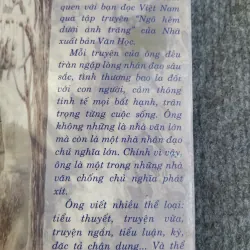 quen với bạn đọc Việt Nam
qua tập truyện "Ngõ hẻm
dưới ánh trăng" của Nhà
xuất bản Văn Học.
Mỗi truyện của ông đều
tràn ngập lòng nhân đạo sâu
sắc, tình thương bao la đối
với con người, cảm thông
tinh tế mọi bất hạnh, trân
trọng từng cuộc sống. Ông
không những là nhà văn lớn
mà còn là một nhà nhân đạo
chủ nghĩa lớn. Chính vì vậy,
ông là một trong những nhà
văn chống chủ nghĩa phát
xít.
Ông viết nhiều thể loại:
tiểu thuyết, truyện vừa,
truyện ngắn, tiểu luận, ký,
đặc tả chân dung... Và thể